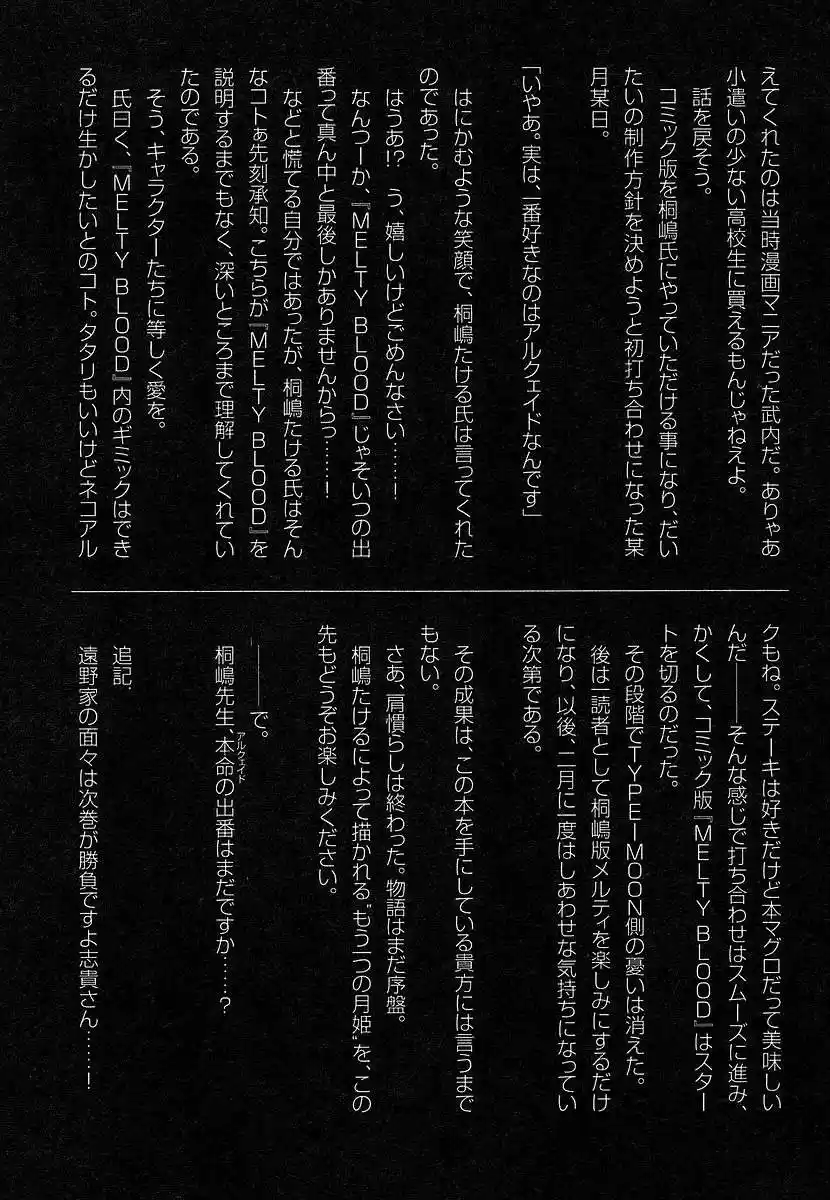 えてくれたのは当時漫画マニアだった武内だ。ありゃあ
小遣いの少ない高校生に買えるもんじゃねえよ。
話を戻そう。
コミック版を桐嶋氏にやっていただける事になり、だい
たいの制作方針を決めようと初打ち合わせになった某
月某日。
「いやあ。実は、一番好きなのはアルクェイドなんです」
はにかむような笑顔で、桐嶋たける氏は言ってくれた
のであった。
はうあ!?　う、嬉しいけどごめんなさい……！
なんつーか、『MELTY BLOOD』じゃそいつの出
番って真ん中と最後しかありませんからっ……！
などと慌てる自分ではあったが、桐嶋たける氏はそん
なコトぁ先刻承知。こちらが『MELTY BLOOD』を
説明するまでもなく、深いところまで理解してくれてい
たのである。
そう、キャラクターたちに等しく愛を。
氏曰く、『MELTY BLOOD』内のギミックはでき
るだけ生かしたいとのコト。タタリもいいけどネコアル
クもね。ステーキは好きだけど本マグロだって美味しい
んだ――そんな感じで打ち合わせはスムーズに進み、
かくして、コミック版『MELTY BLOOD』はスター
トを切るのだった。
その段階でTYPE-MOON側の憂いは消えた。
後は一読者として桐嶋版メルティを楽しみにするだけ
になり、以後、二月に一度はしあわせな気持ちになってい
る次第である。
その成果は、この本を手にしている貴方には言うまで
もない。
さあ、肩慣らしは終わった。物語はまだ序盤。
桐嶋たけるによって描かれる“もう一つの月姫”を、この
先もどうぞお楽しみください。
――で。
桐嶋先生、本命の出番はまだですか……？
アルクェイド
追記．
遠野家の面々は次巻が勝負ですよ志貴さん……！